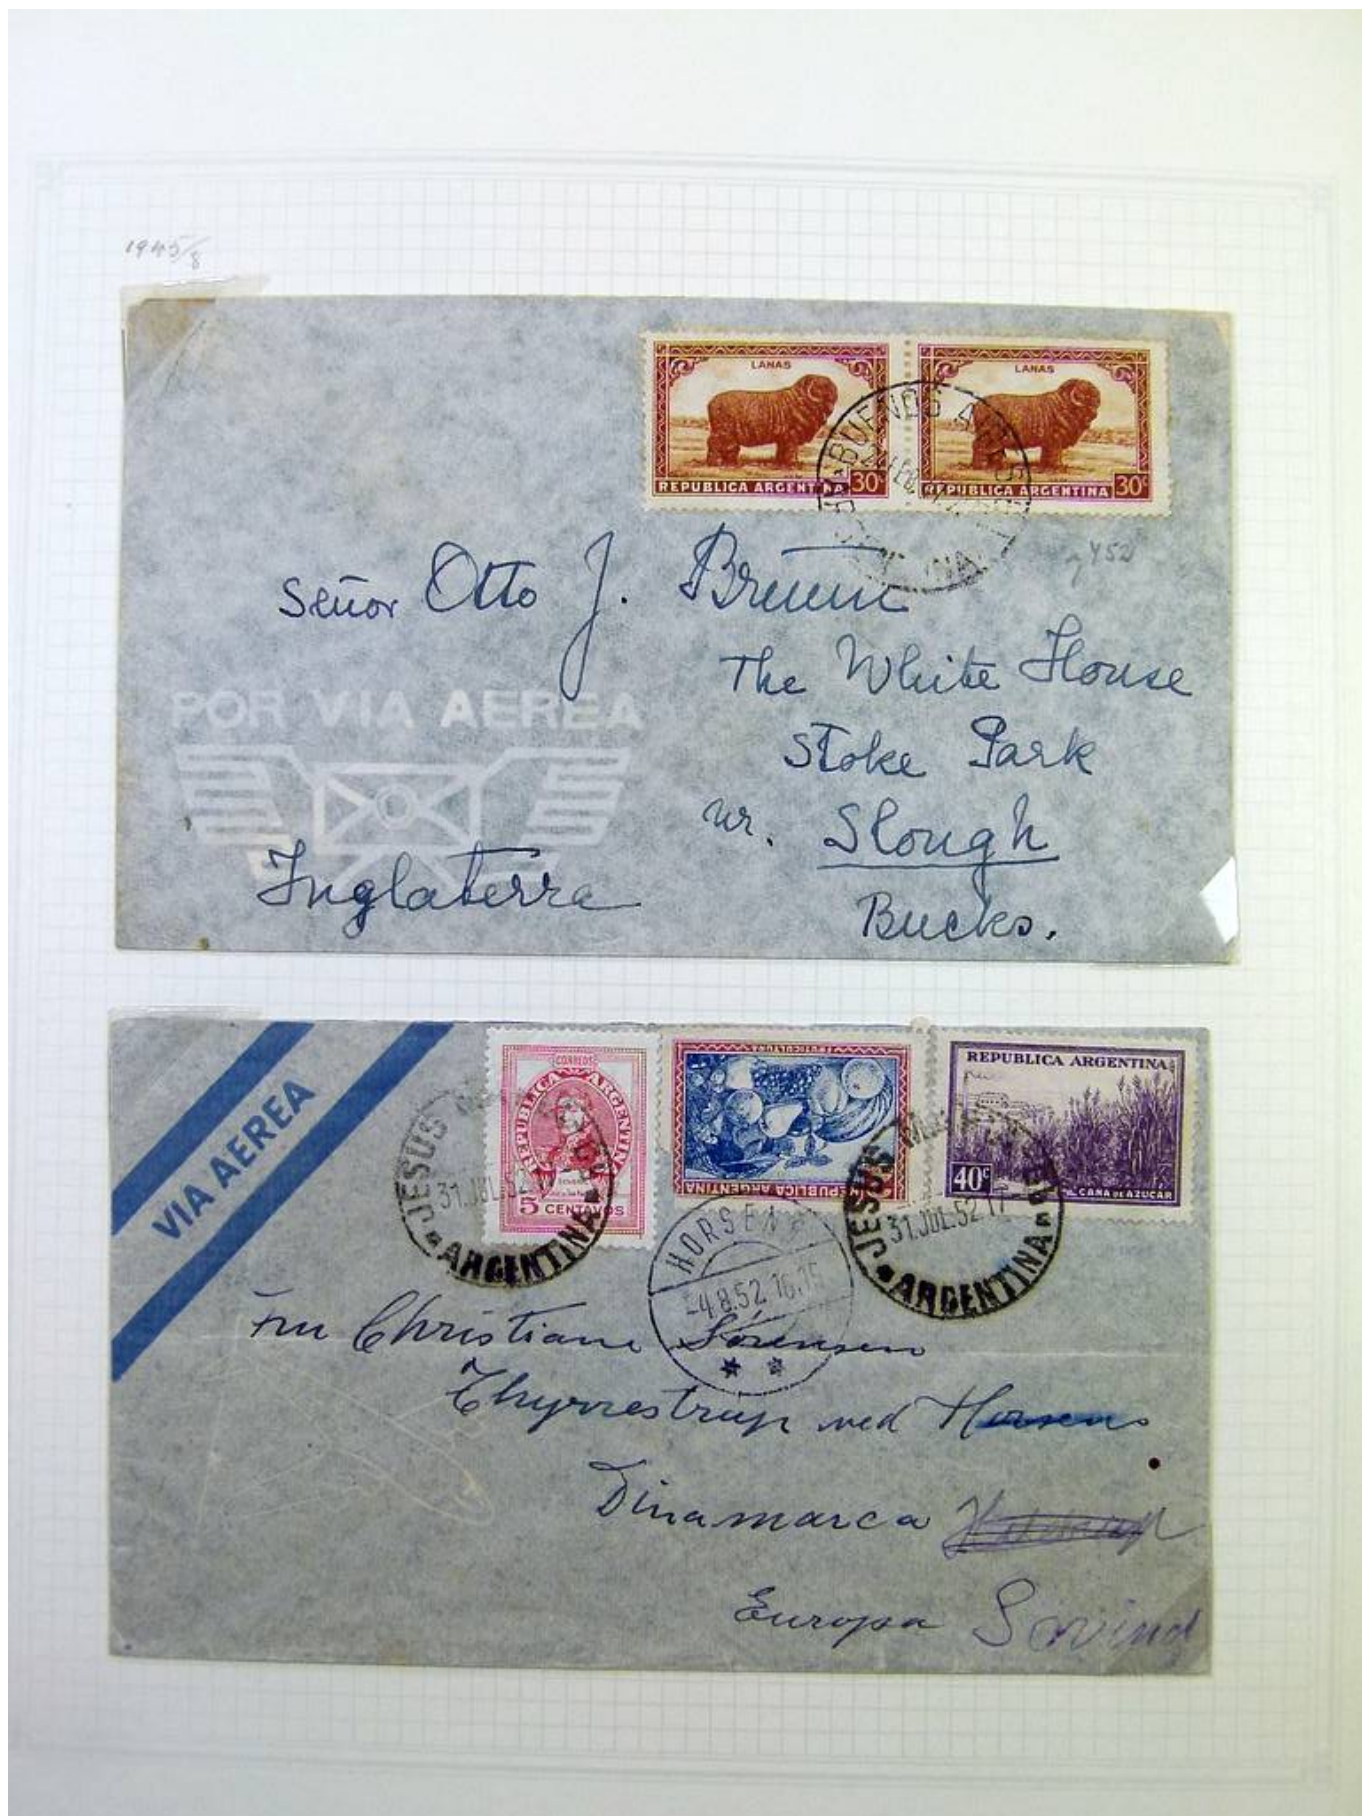 1945/8
LANAS
REPUBLICA ARGENTINA 30c
LANAS
REPUBLICA ARGENTINA 30c
BUENOS AIRES
452
Señor Otto J. Bruun
The White House
Stoke Park
nr. Slough
Bucks.
POR VIA AEREA
Inglaterra
VIA AEREA
CORREOS
REPUBLICA ARGENTINA
5 CENTAVOS
FRUTICULTURA
REPUBLICA ARGENTINA
REPUBLICA ARGENTINA
40c CAÑA DE AZUCAR
JESUS
31.JUL.52.17
ARGENTINA
JESUS MARIA
31.JUL.52.17
ARGENTINA
HORSENS
-4.8.52.16.15
Fru Christiane Sörensen
Thyrrestrup ved Horsens
Dinamarca
Europa Søvind